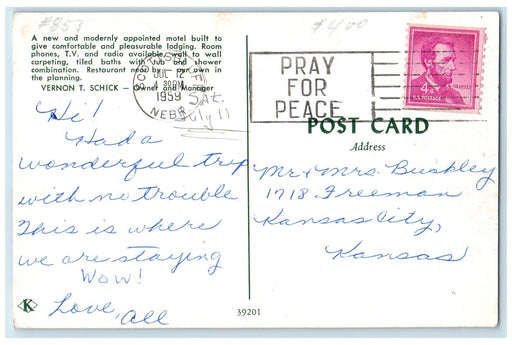 #853
$4.00
A new and modernly appointed motel built to
give comfortable and pleasurable lodging. Room
phones, T.V. and radio available, wall to wall
carpeting, tiled baths with tub and shower
combination. Restaurant near our own in
the planning.
VERNON T. SCHICK — Owner and Manager
JUL 12
4 30 PM
1959
NEBR.
PRAY
FOR
PEACE
4¢
U.S. POSTAGE
Sat.
July 11
Hi!
Had a
wonderful trip
with no trouble
This is where
we are staying
Wow!
Love, all
POST CARD
Address
Mr & Mrs. Buckley
1718 Freeman
Kansas City,
Kansas
K
39201